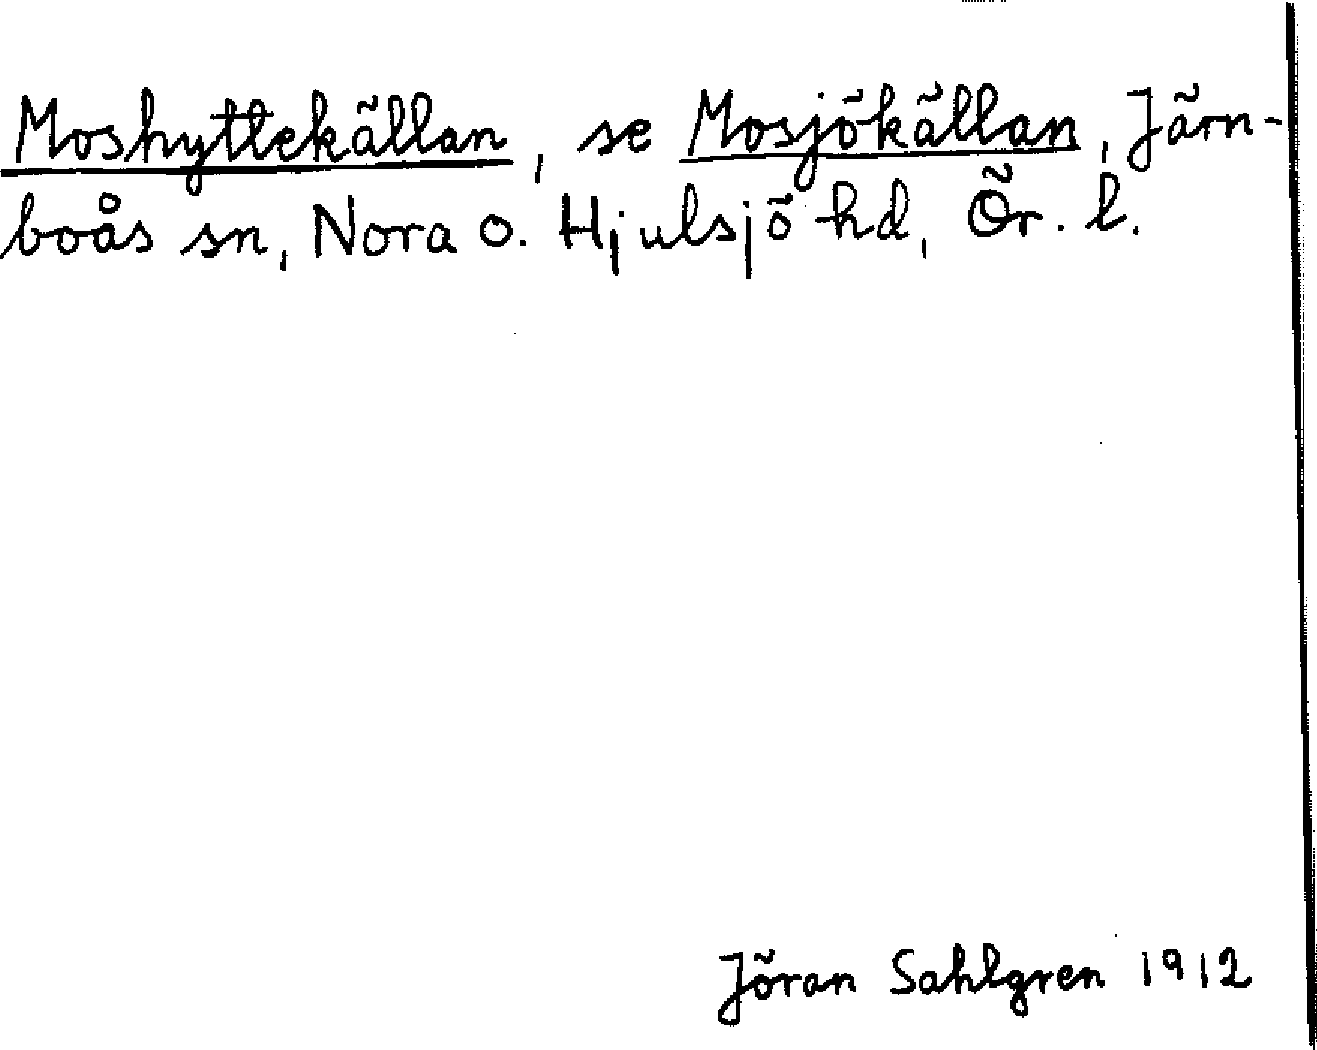 Moshyttekällan, se Mosjökällan, Järn-
boås sn, Nora o. Hjulsjö hd, Ör. l.
Jöran Sahlgren 1912